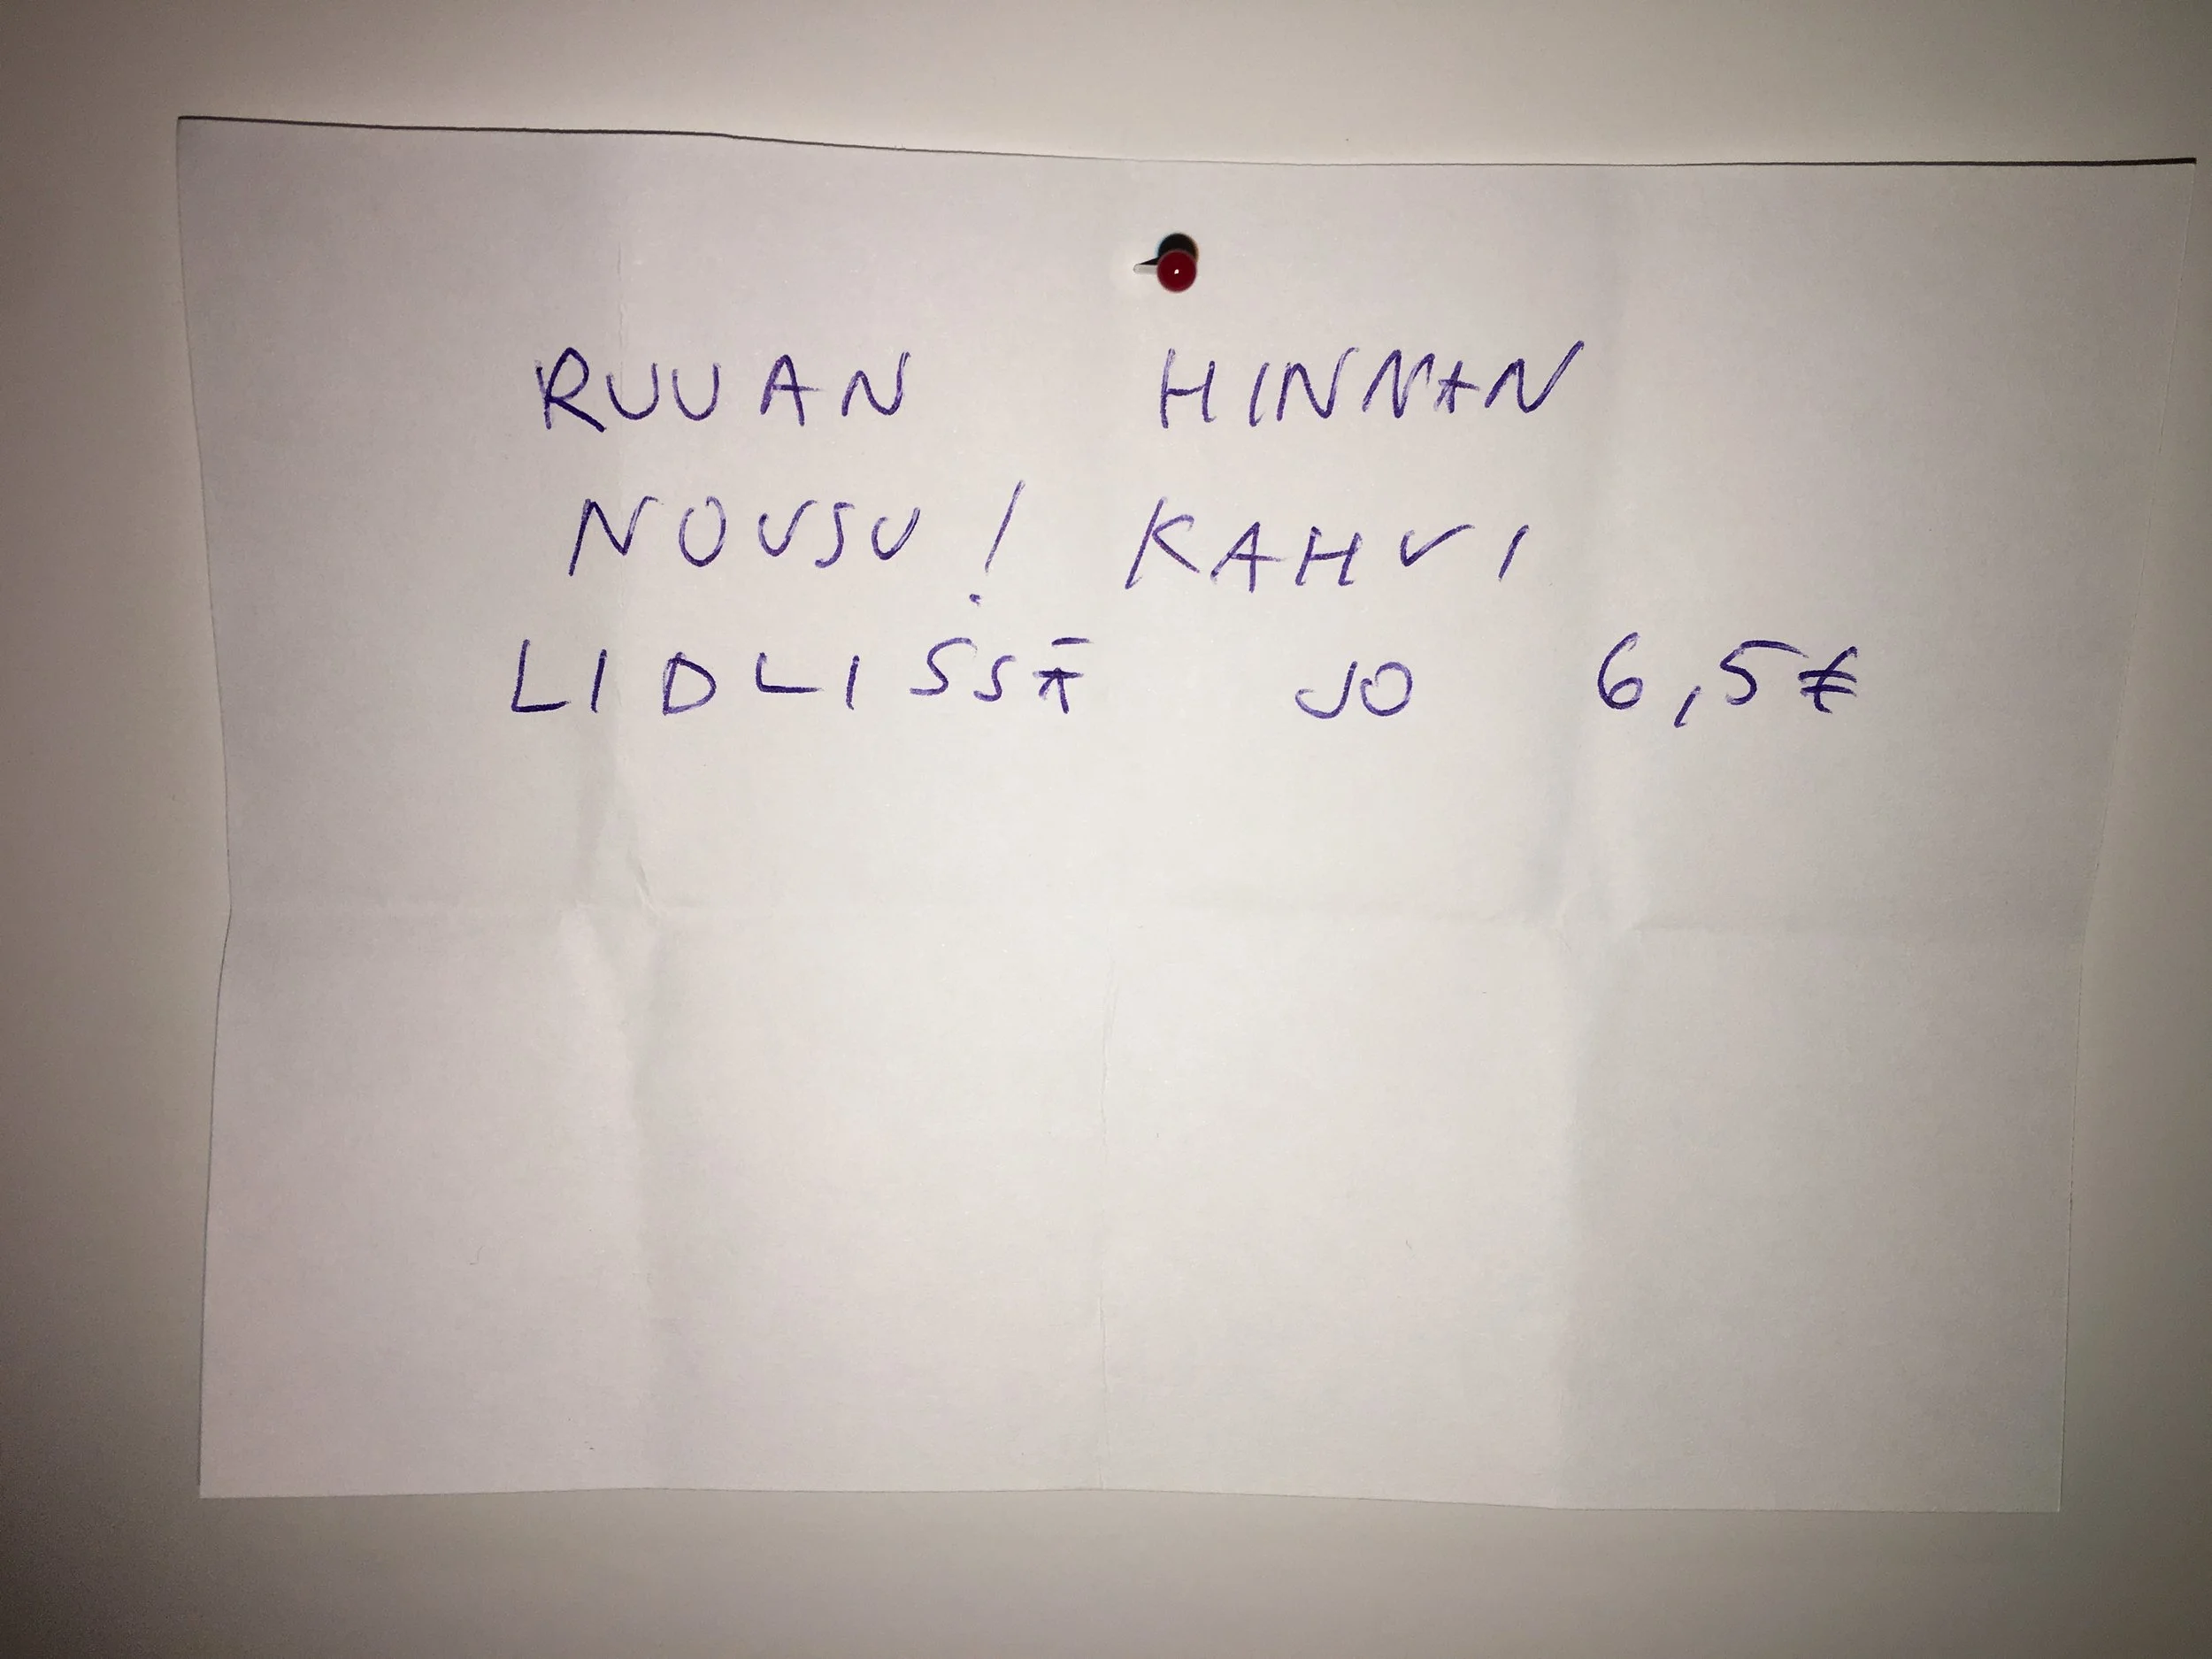 RUUAN HINNAN
NOUSU! KAHVI
LIDLISSÄ JO 6,5€